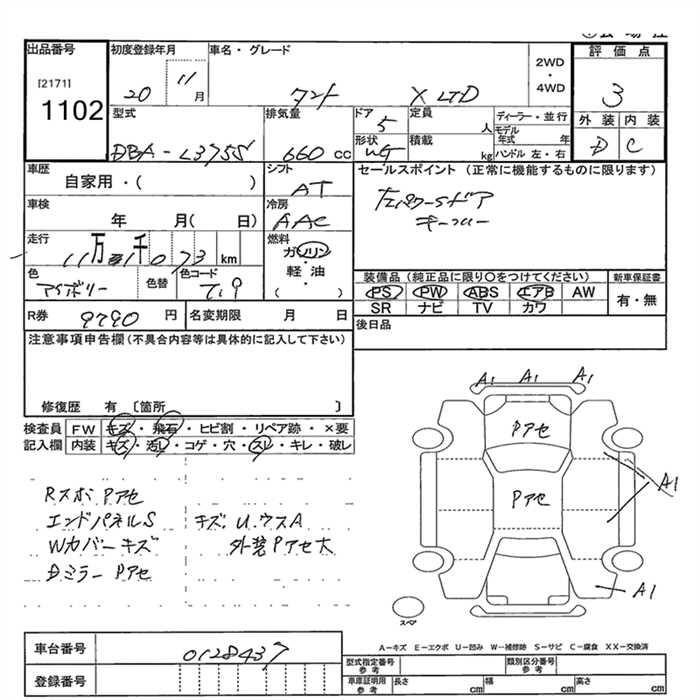 出品番号
[2171]
1102
初度登録年月
20 11 月
車名・グレード
タント X LTD
2WD
・
4WD
評価点
3
外装 内装
D C
型式
DBA-L375S
排気量
660 cc
ドア
5
形状
定員
人
積載
kg
ディーラー・並行
モデル
年式 年
ハンドル 左・右
車歴
自家用・( )
シフト
AT
車検
年 月( 日)
冷房
AAC
走行
11万 千 073 km
燃料
ガソリン
・
軽油
・
( )
色
アイボリー
色替
色コード
T19
R券
9790 円
名変期限 月 日
セールスポイント (正常に機能するものに限ります)
左パワーSドア
キーフリー
装備品 (純正品に限り○をつけてください)
PS PW ABS エアB AW
SR ナビ TV カワ
新車保証書
有・無
後日品
注意事項申告欄(不具合内容等は具体的に記入して下さい)
修復歴 有 〔箇所 〕
検査員
記入欄
FW キズ・飛石・ヒビ割・リペア跡・×要
内装 キズ・汚レ・コゲ・穴・スレ・キレ・破レ
Rスポ Pアセ
エンドパネルS
Wカバーキズ
Dミラー Pアセ
キズ U.ウスA
外装Pアセ大
A1 A1 A1
Pアセ
Pアセ
A1
A1
スペア
A-キズ E-エクボ U-凹み W-補修跡 S-サビ C-腐食 XX-交換済
車台番号
0128437
登録番号
型式指定番号
参考
類別区分番号
参考
車庫証明用
参考
長さ cm
幅 cm
高さ cm